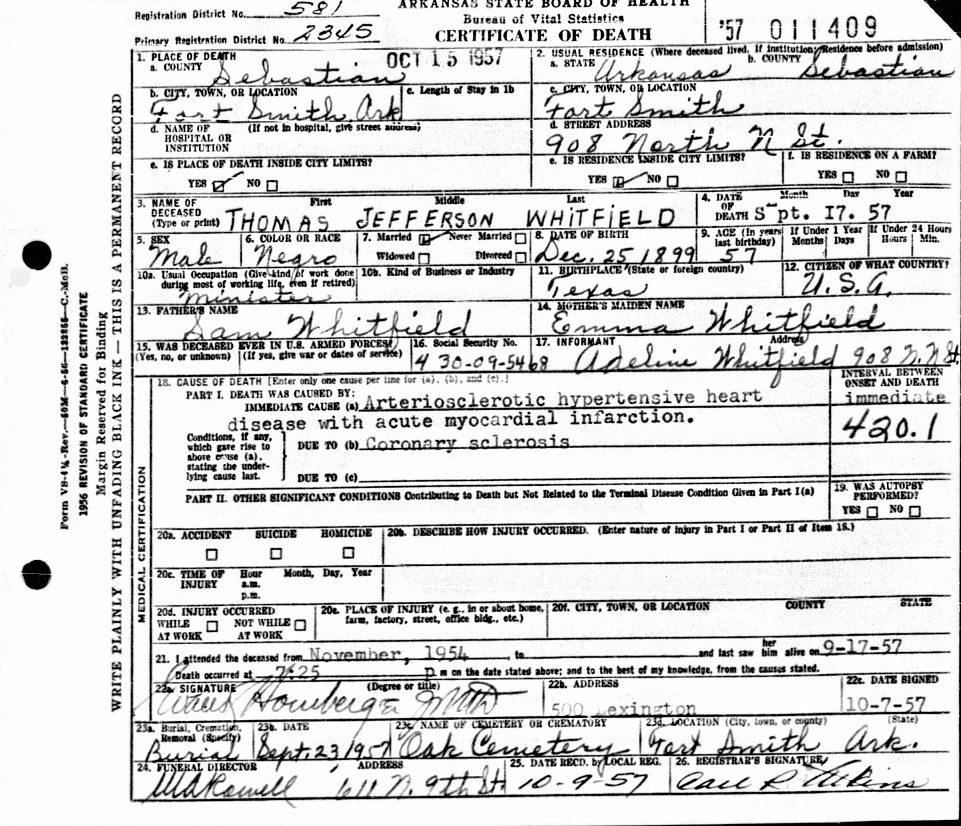 ARKANSAS STATE BOARD OF HEALTH
Registration District No. 581
Bureau of Vital Statistics
Primary Registration District No. 2345
CERTIFICATE OF DEATH
'57 011409
1. PLACE OF DEATH OCT 15 1957
a. COUNTY Sebastian
2. USUAL RESIDENCE (Where deceased lived, If institution; Residence before admission)
a. STATE Arkansas b. COUNTY Sebastian
b. CITY, TOWN, OR LOCATION Fort Smith Ark
c. Length of Stay in 1b
c. CITY, TOWN, OR LOCATION Fort Smith
d. NAME OF HOSPITAL OR INSTITUTION (If not in hospital, give street address)
d. STREET ADDRESS 908 North N St.
e. IS PLACE OF DEATH INSIDE CITY LIMITS?
YES NO
e. IS RESIDENCE INSIDE CITY LIMITS?
YES NO
f. IS RESIDENCE ON A FARM?
YES NO
3. NAME OF DECEASED (Type or print) First Middle Last
THOMAS JEFFERSON WHITFIELD
4. DATE OF DEATH Month Day Year
S pt. 17. 57
5. SEX Male
6. COLOR OR RACE Negro
7. Married Never Married
Widowed Divorced
8. DATE OF BIRTH Dec. 25 1899
9. AGE (In years last birthday) 57
If Under 1 Year Months Days
If Under 24 Hours Hours Min.
10a. Usual Occupation (Give kind of work done during most of working life, even if retired) Minister
10b. Kind of Business or Industry
11. BIRTHPLACE (State or foreign country) Texas
12. CITIZEN OF WHAT COUNTRY? U.S.A.
13. FATHER'S NAME Sam Whitfield
14. MOTHER'S MAIDEN NAME Emma Whitfield
15. WAS DECEASED EVER IN U.S. ARMED FORCES?
(Yes, no, or unknown) (If yes, give war or dates of service)
16. Social Security No. 430-09-5468
17. INFORMANT Address
Adeline Whitfield 908 N. N St.
18. CAUSE OF DEATH [Enter only one cause per line for (a), (b), and (c).]
INTERVAL BETWEEN ONSET AND DEATH
PART I. DEATH WAS CAUSED BY:
IMMEDIATE CAUSE (a) Arteriosclerotic hypertensive heart immediate
disease with acute myocardial infarction.
420.1
Conditions, if any, which gave rise to above cause (a), stating the underlying cause last.
DUE TO (b) Coronary sclerosis
DUE TO (c)
PART II. OTHER SIGNIFICANT CONDITIONS Contributing to Death but Not Related to the Terminal Disease Condition Given in Part I(a)
19. WAS AUTOPSY PERFORMED?
YES NO
20a. ACCIDENT SUICIDE HOMICIDE
20b. DESCRIBE HOW INJURY OCCURRED. (Enter nature of injury in Part I or Part II of Item 18.)
20c. TIME OF INJURY Hour a.m. p.m. Month, Day, Year
20d. INJURY OCCURRED
WHILE AT WORK NOT WHILE AT WORK
20e. PLACE OF INJURY (e. g., in or about home, farm, factory, street, office bldg., etc.)
20f. CITY, TOWN, OR LOCATION COUNTY STATE
21. I attended the deceased from November, 1954, to and last saw her him alive on 9-17-57
Death occurred at 7:25 p m on the date stated above; and to the best of my knowledge, from the causes stated.
22a. SIGNATURE (Degree or title)
22b. ADDRESS 500 Lexington
22c. DATE SIGNED 10-7-57
23a. Burial, Cremation, Removal (Specify) Burial
23b. DATE Sept. 23 1957
23c. NAME OF CEMETERY OR CREMATORY Oak Cemetery
23d. LOCATION (City, town, or county) (State) Fort Smith Ark.
24. FUNERAL DIRECTOR ADDRESS
611 N. 9th St.
25. DATE RECD. by LOCAL REG. 10-9-57
26. REGISTRAR'S SIGNATURE
MEDICAL CERTIFICATION
WRITE PLAINLY WITH UNFADING BLACK INK — THIS IS A PERMANENT RECORD
Margin Reserved for Binding
1956 REVISION OF STANDARD CERTIFICATE